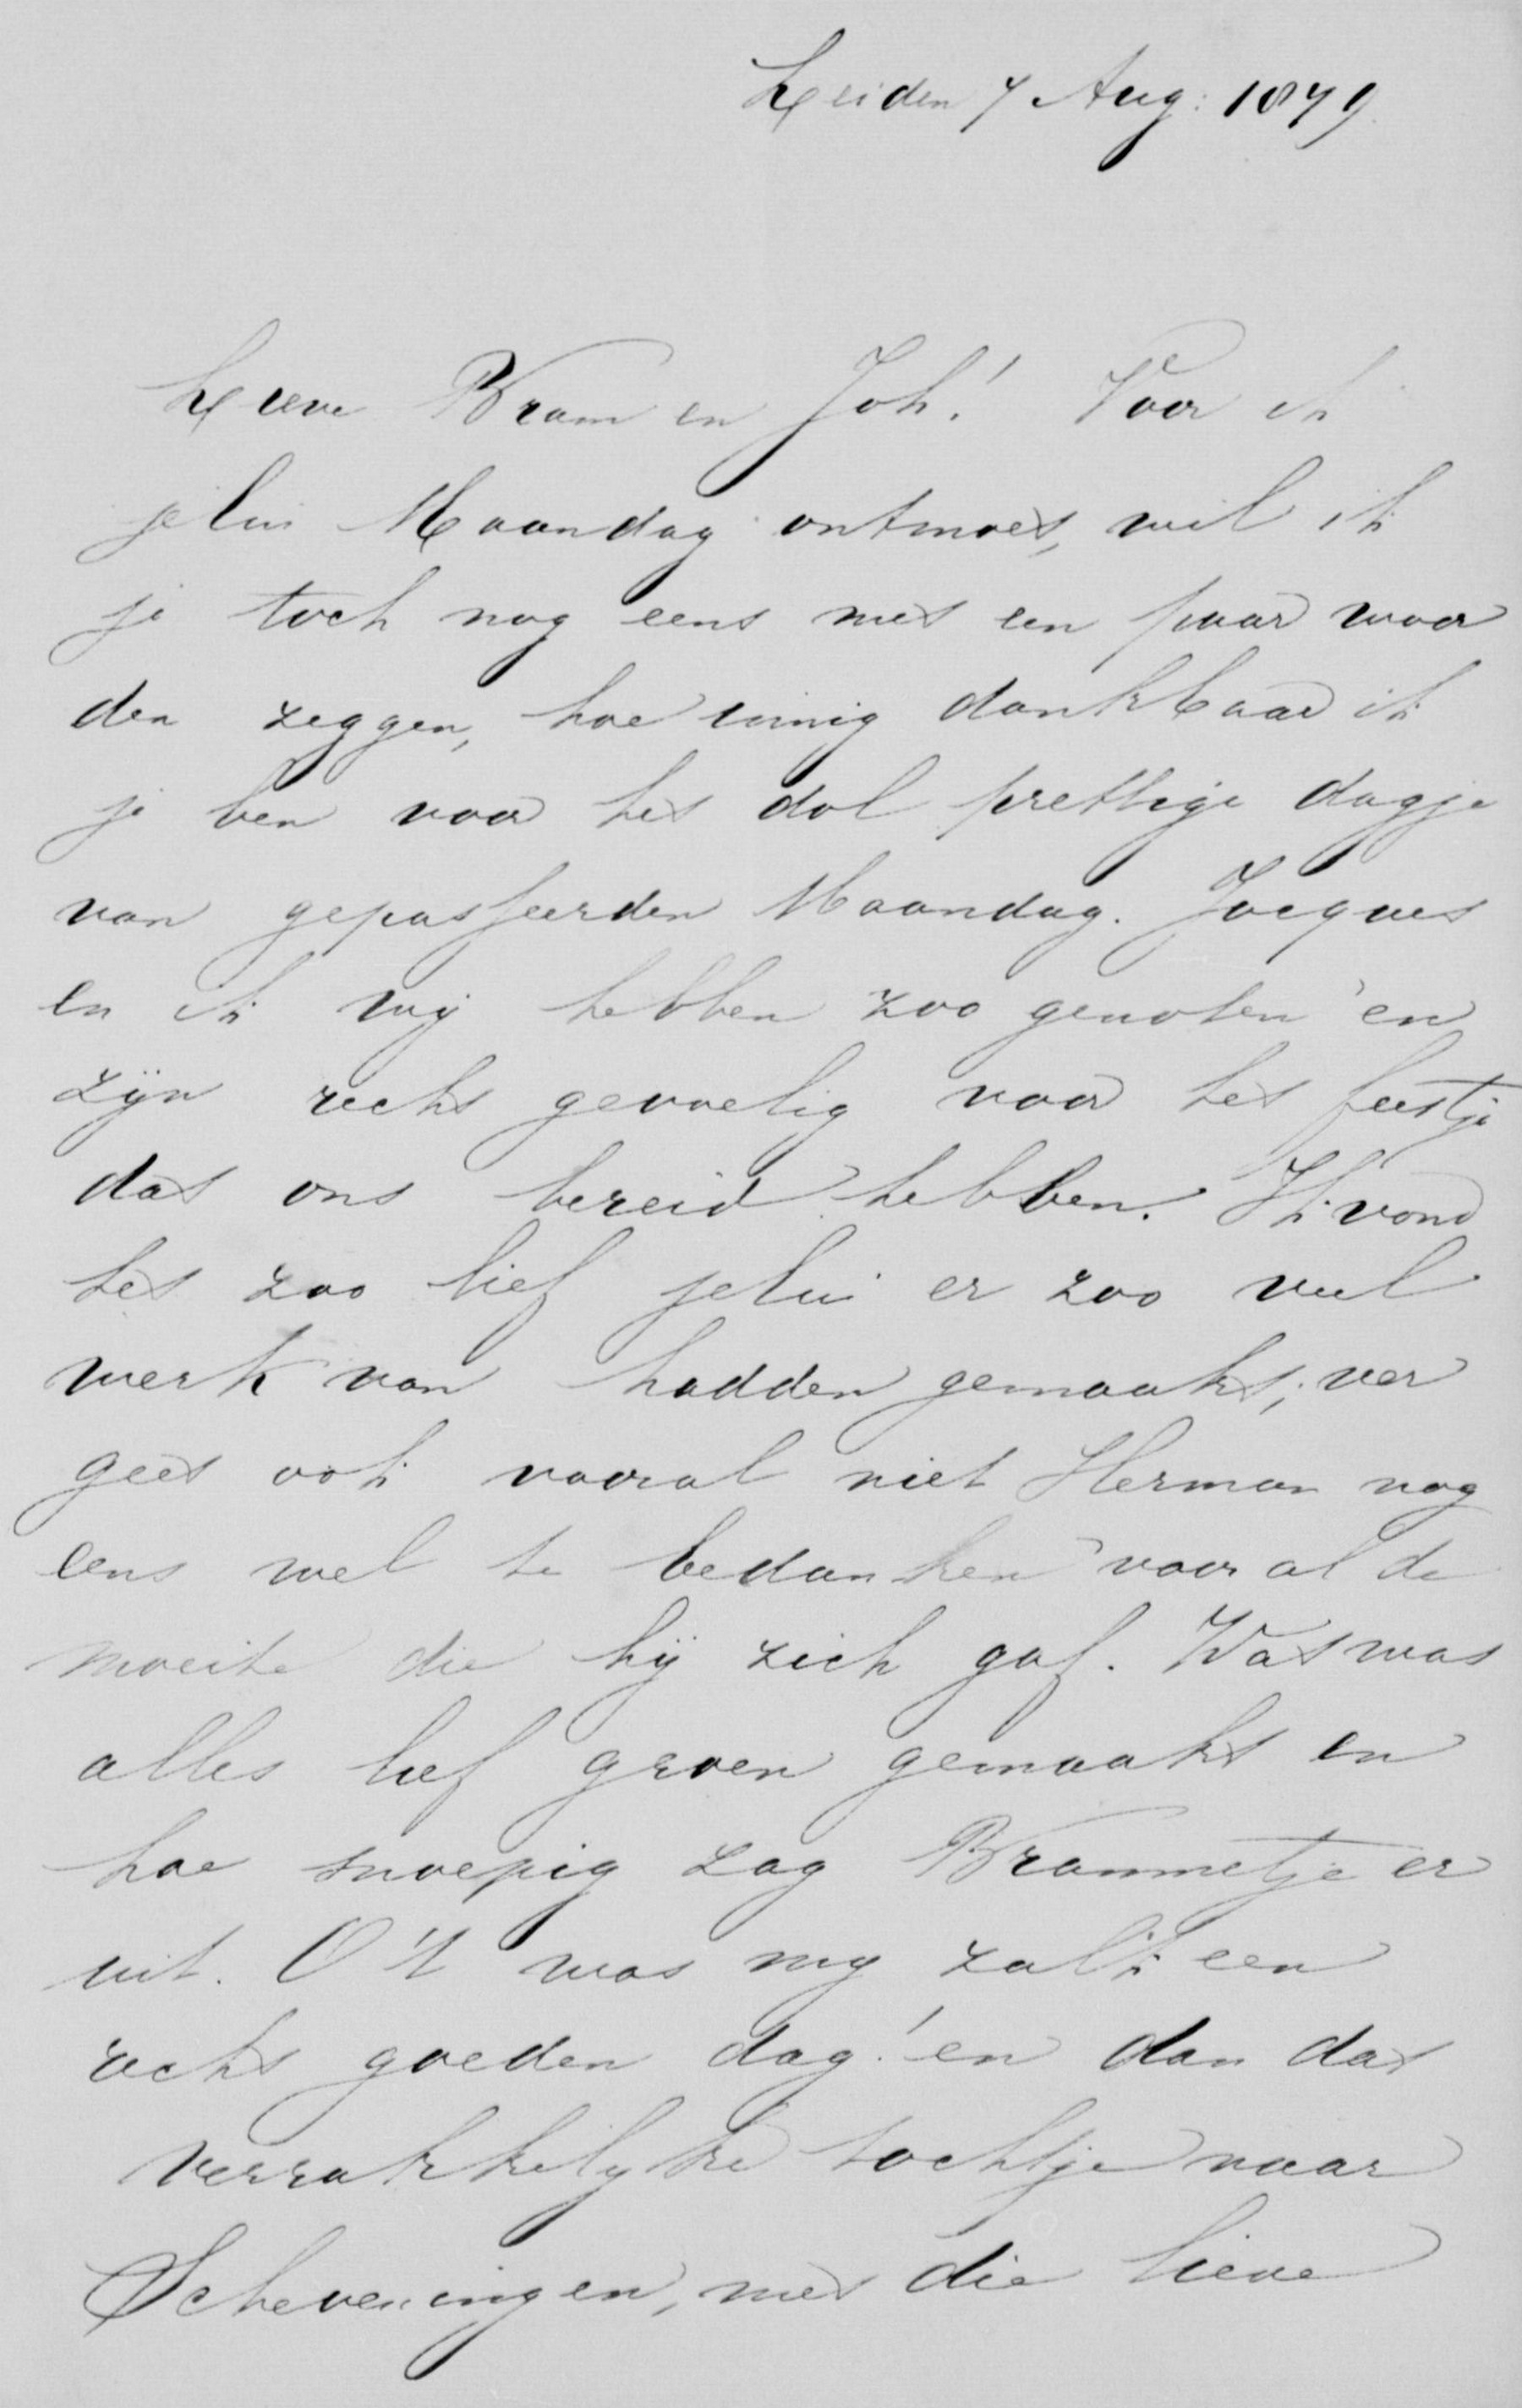 Leiden 7 Aug: 1879.
Lieve Bram en Joh! Voor ik
jelui Maandag ontmoet, wil ik
je toch nog eens met een paar woor
den zeggen, hoe innig dankbaar ik
je ben voor het dol prettige dagje
van gepasseerden Maandag. Jacques
en ik wij hebben zoo genoten en
zijn recht gevoelig voor het feestje
dat ons bereid hebben. Ik vond
het zoo lief jelui er zoo veel
werk van hadden gemaakt; ver
geet ook vooral niet Herman nog
eens wel te bedanken voor al de
moeite die hij zich gaf. Wat was
alles lief groen gemaakt en
hoe snoepig zag Brammetje er
uit. O 't was mij zalk een
recht goeden dag! en dan dat
verrakkelijke tochtje naar
Scheveningen, met die lieve